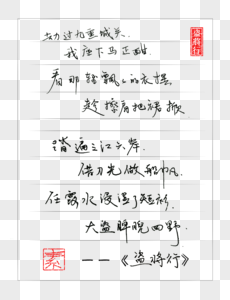 盗将行
劫过九重城关
我座下马正酣
看那轻飘飘的衣摆
趁擦肩把裙掀
踏遍三江六岸
借刀光做船帆
任露水浸了短衫
大盗睥睨四野
——《盗将行》